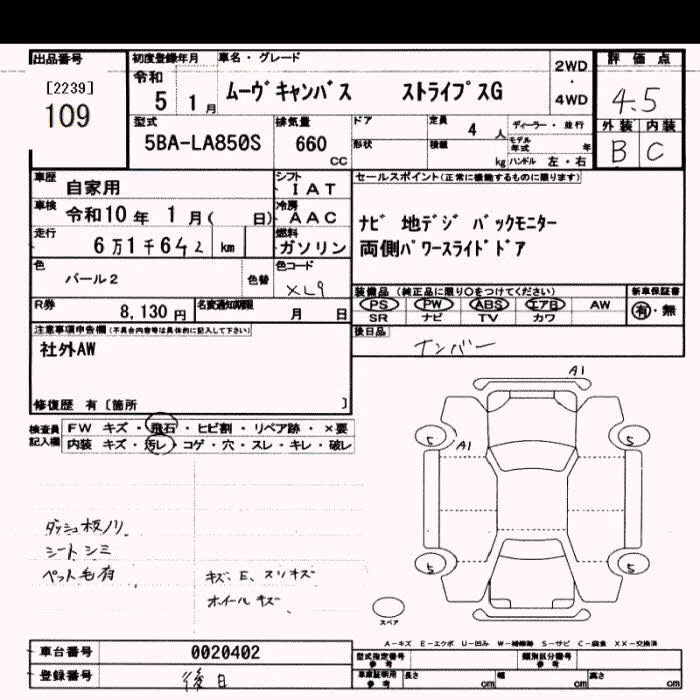 出品番号
[2239]
109
初度登録年月
令和
5 1月
車名・グレード
ムーヴキャンバス ストライプスG
2WD
・
4WD
評価点
4.5
外装 内装
B C
型式
5BA-LA850S
排気量
660
CC
ドア
形状
定員
4人
積載
kg
ディーラー・並行
モデル年式 年
ハンドル 左・右
車歴
自家用
シフト
IAT
車検
令和10年 1月( 日)
冷房
AAC
走行
6万1千642 km
燃料
ガソリン
セールスポイント(正常に機能するものに限ります)
ナビ 地デジ バックモニター
両側パワースライドドア
色
パール2
色替
色コード
XL9
R券
8,130円
名変通知期限
月 日
装備品(純正品に限り○をつけてください)
PS PW ABS エアB AW
SR ナビ TV カワ
新車保証書
有・無
後日品
ナンバー
注意事項申告欄(不具合内容等は具体的に記入して下さい)
社外AW
修復歴 有〔箇所 〕
検査員
記入欄
FW キズ・飛石・ヒビ割・リペア跡・×要
内装 キズ・汚レ・コゲ・穴・スレ・キレ・破レ
A1
5
A1
5
5
5
ダッシュ板ノリ
シートシミ
ペット毛有
キズ、E、スリキズ
ホイールキズ
スペア
A-キズ E-エクボ U-凹み W-補修跡 S-サビ C-腐食 XX-交換済
車台番号
0020402
登録番号
後日
型式指定番号
参考
類別区分番号
参考
車庫証明用
参考
長さ cm
幅 cm
高さ cm